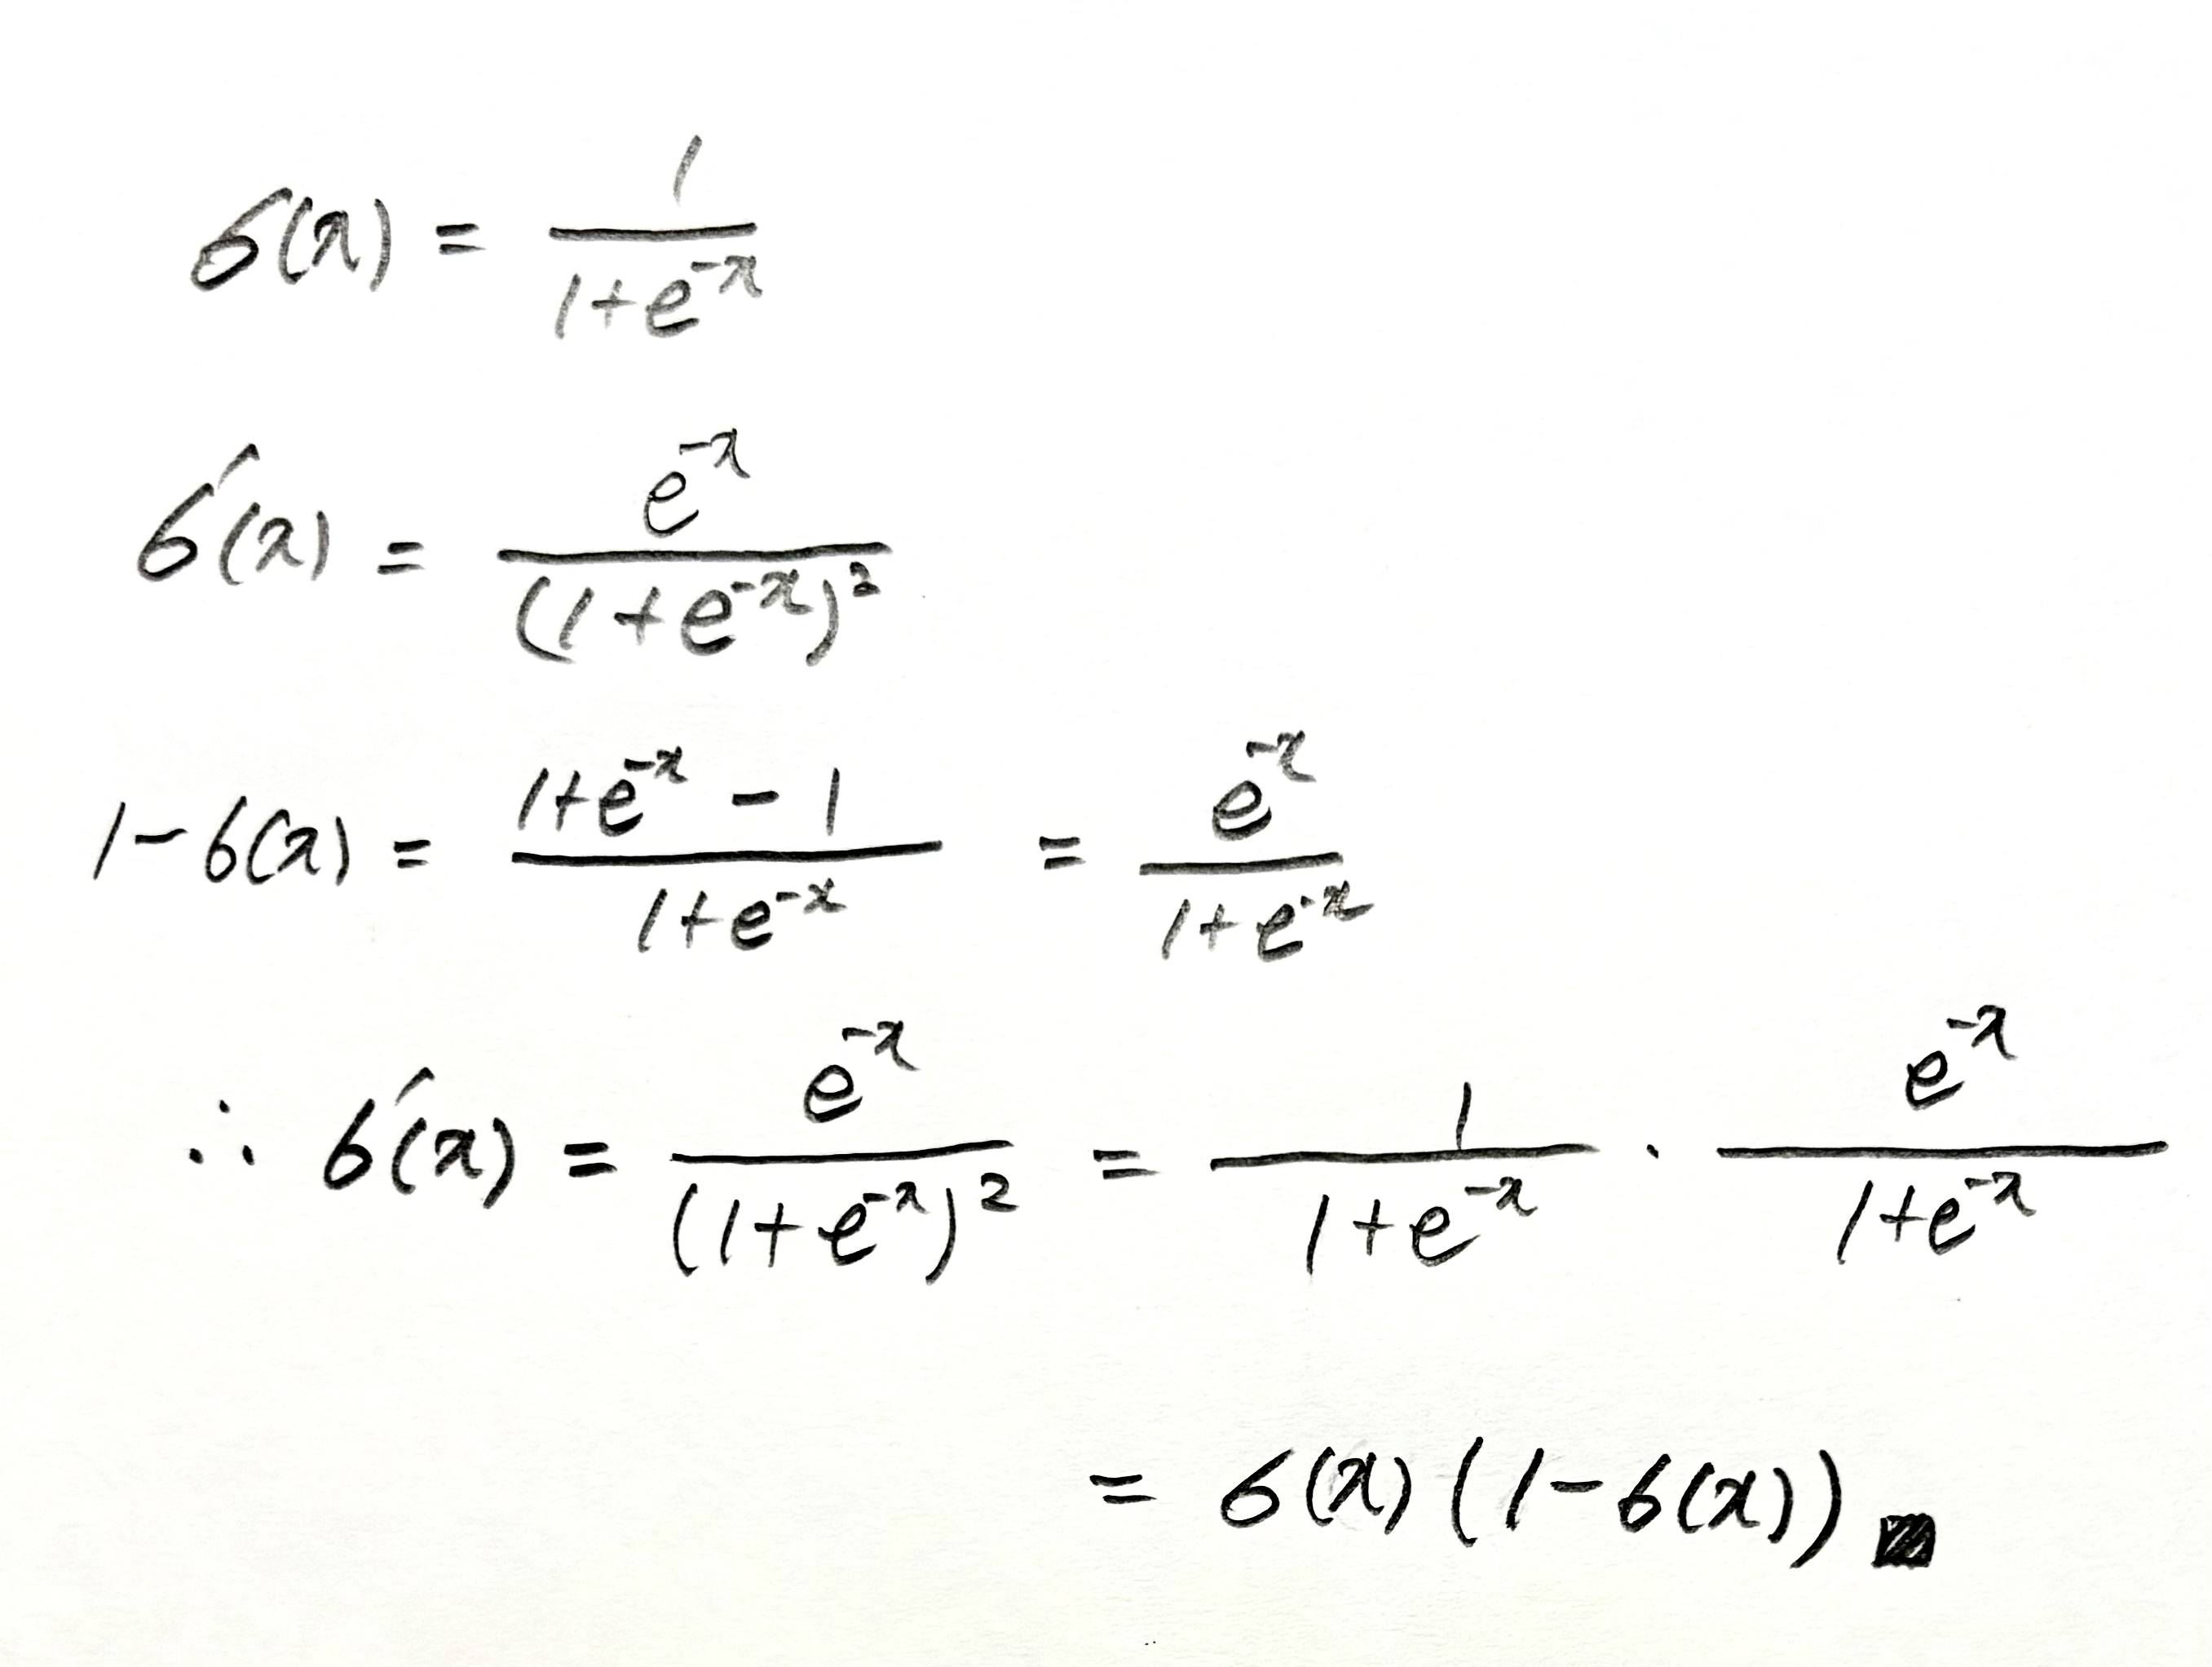 σ(x) = 1/(1+e^{-x})
σ'(x) = e^{-x}/(1+e^{-x})^2
1-σ(x) = (1+e^{-x} - 1)/(1+e^{-x}) = e^{-x}/(1+e^{-x})
∴ σ'(x) = e^{-x}/(1+e^{-x})^2 = 1/(1+e^{-x}) · e^{-x}/(1+e^{-x})
= σ(x)(1-σ(x)) ■